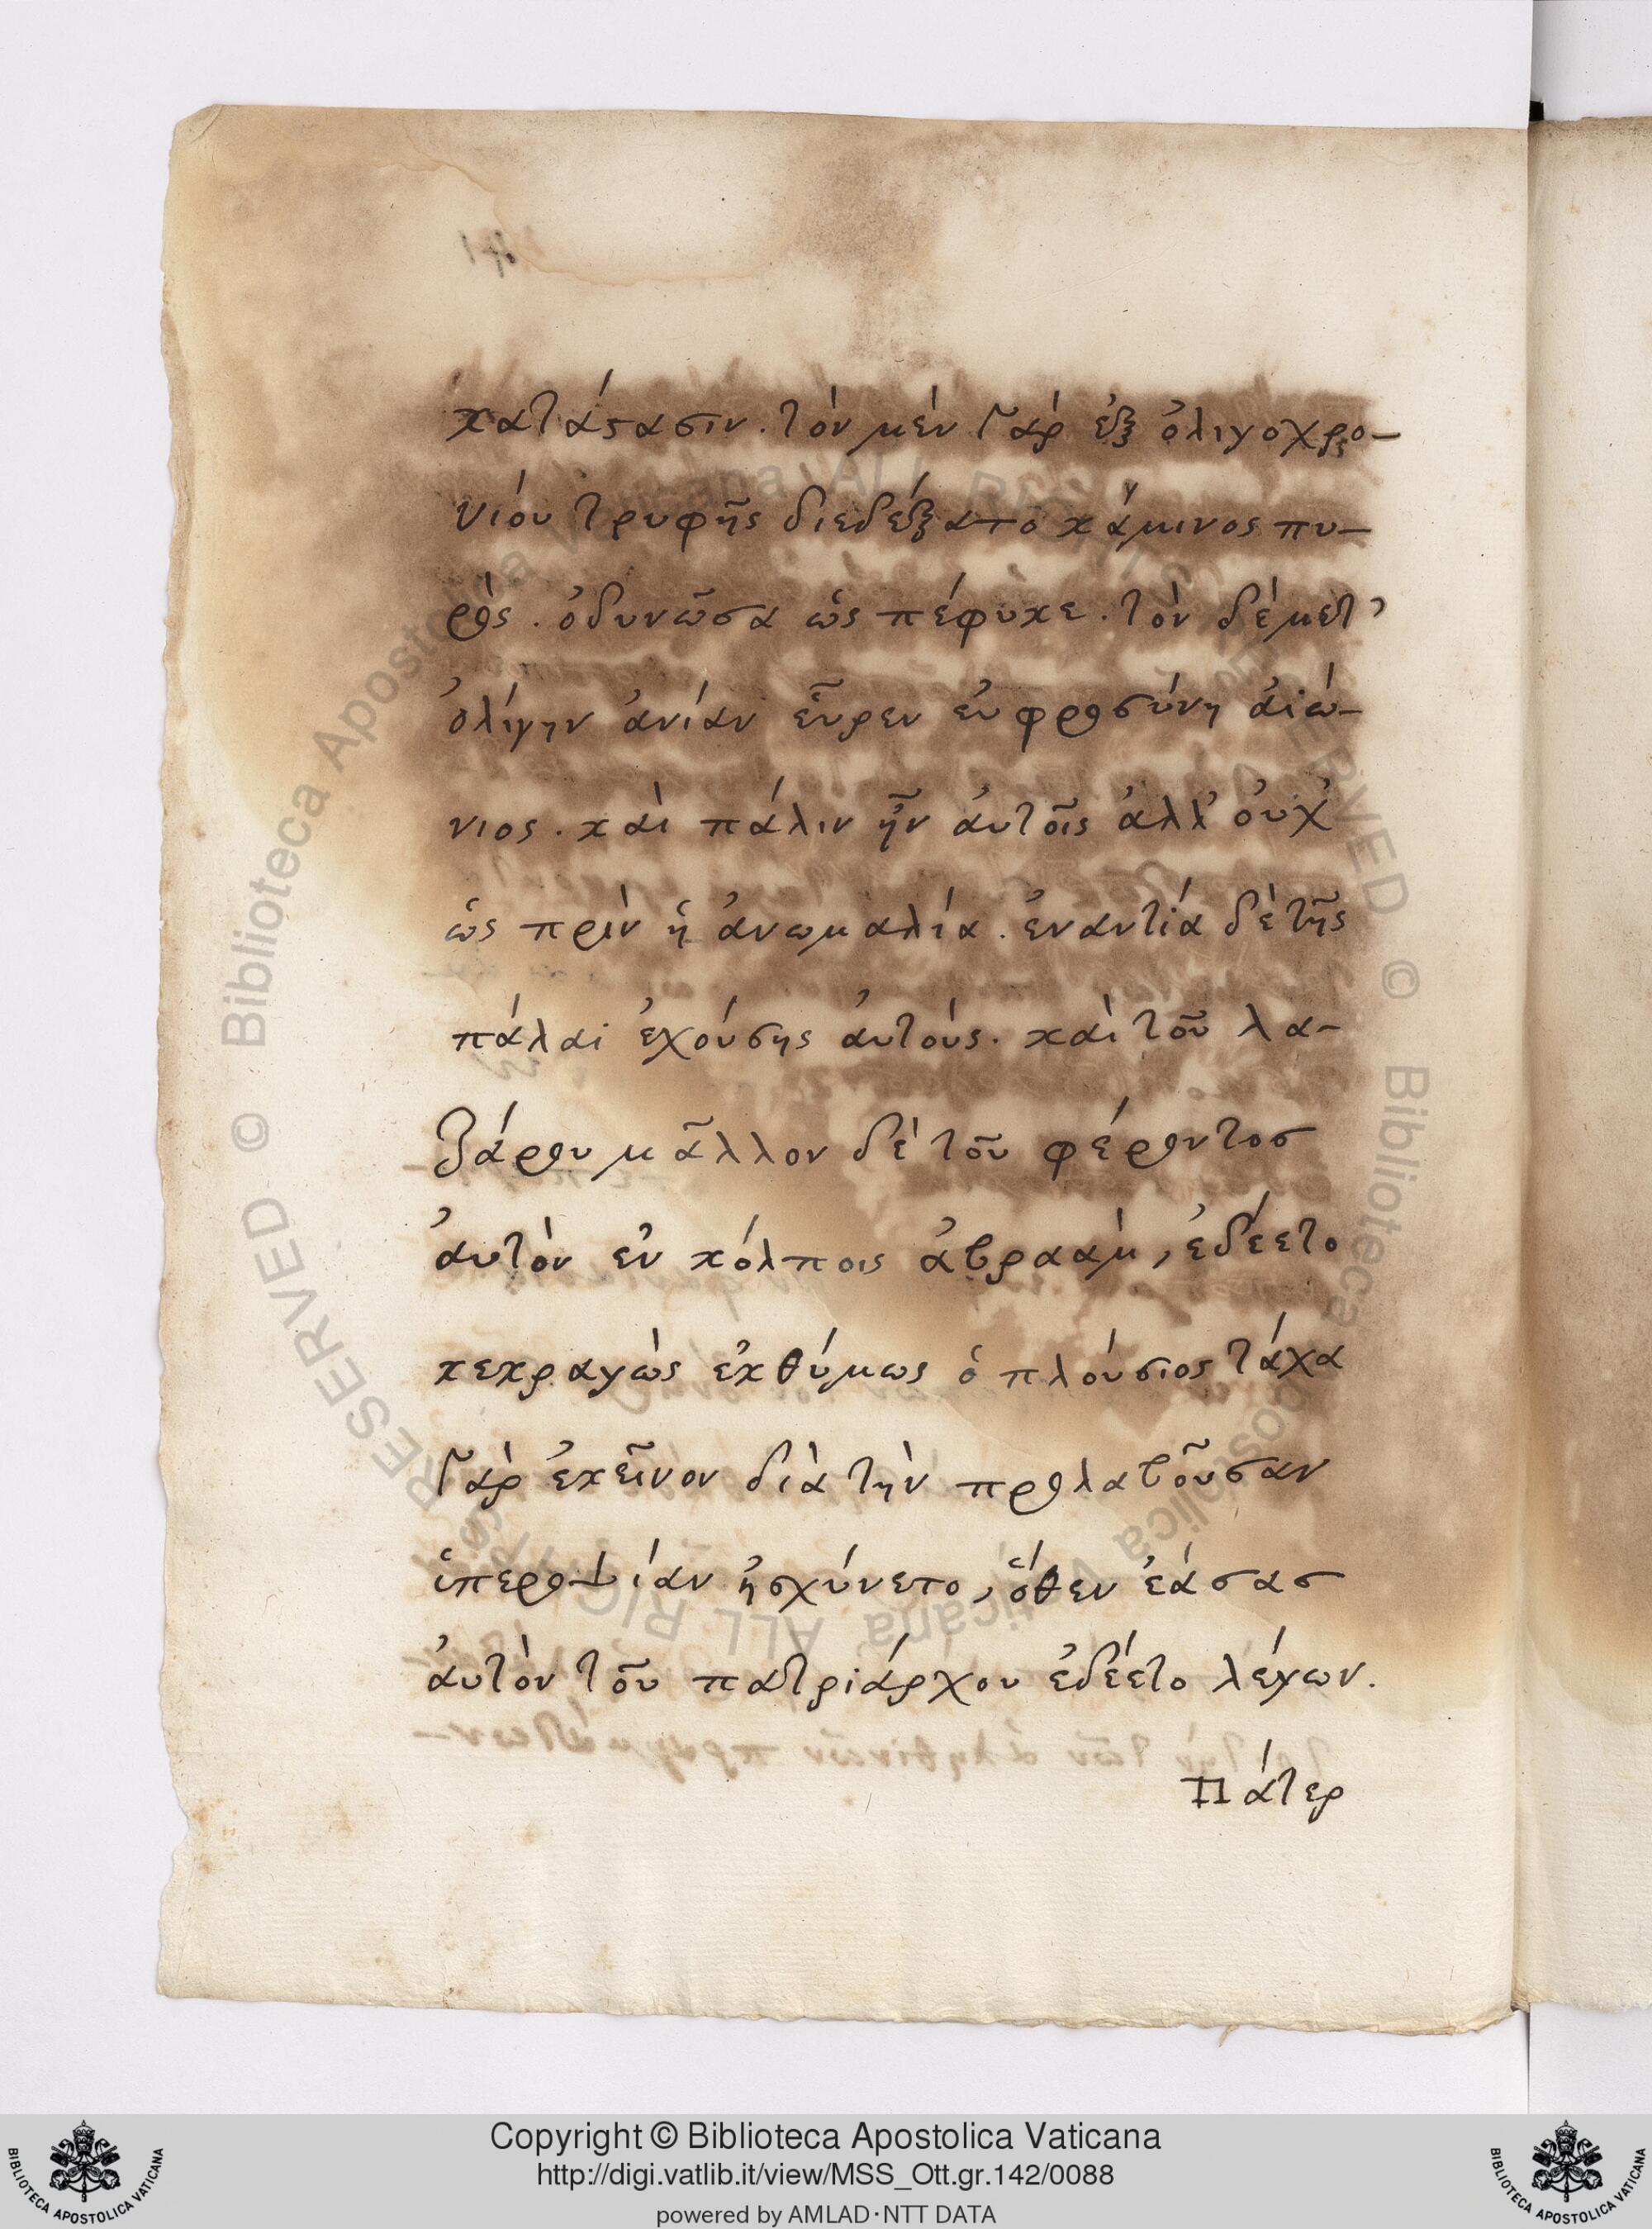 κατάϛασιν. τὸν μὲν γὰρ ἐξ ὀλιγοχρο-
νίου τρυφῆς διεδέξατο κάμινος πυ-
ρὸς. ὀδυνῶσα ὡς πέφυκε. τὸν δὲ μετ'
ὀλίγην ἀνίαν εὗρεν εὐφροσύνη αἰώ-
νιος. καὶ πάλιν ἦν αὐτοῖς ἀλλ' οὐχ
ὡς πρὶν ἡ ἀνωμαλία. ἐναντία δὲ τῆς
πάλαι ἐχούσης αὐτούς. καὶ τοῦ λα-
ζάρου μᾶλλον δὲ τοῦ φέροντοσ
αὐτὸν ἐν κόλποις ἀβραὰμ, ἐδέετο
κεκραγὼς ἐκθύμως ὁ πλούσιος τάχα
γὰρ ἐκεῖνον διὰ τὴν προλαβοῦσαν
ὑπεροψίαν ἠσχύνετο, ὅθεν ἐάσασ
αὐτὸν τοῦ πατριάρχου ἐδέετο λέγων.
Πάτερ
Copyright © Biblioteca Apostolica Vaticana
http://digi.vatlib.it/view/MSS_Ott.gr.142/0088
powered by AMLAD·NTT DATA
BIBLIOTECA APOSTOLICA VATICANA
BIBLIOTECA APOSTOLICA VATICANA
© Biblioteca Apostolica Vaticana ALL RIGHTS RESERVED © Biblioteca Apostolica Vaticana ALL RIGHTS RESERVED